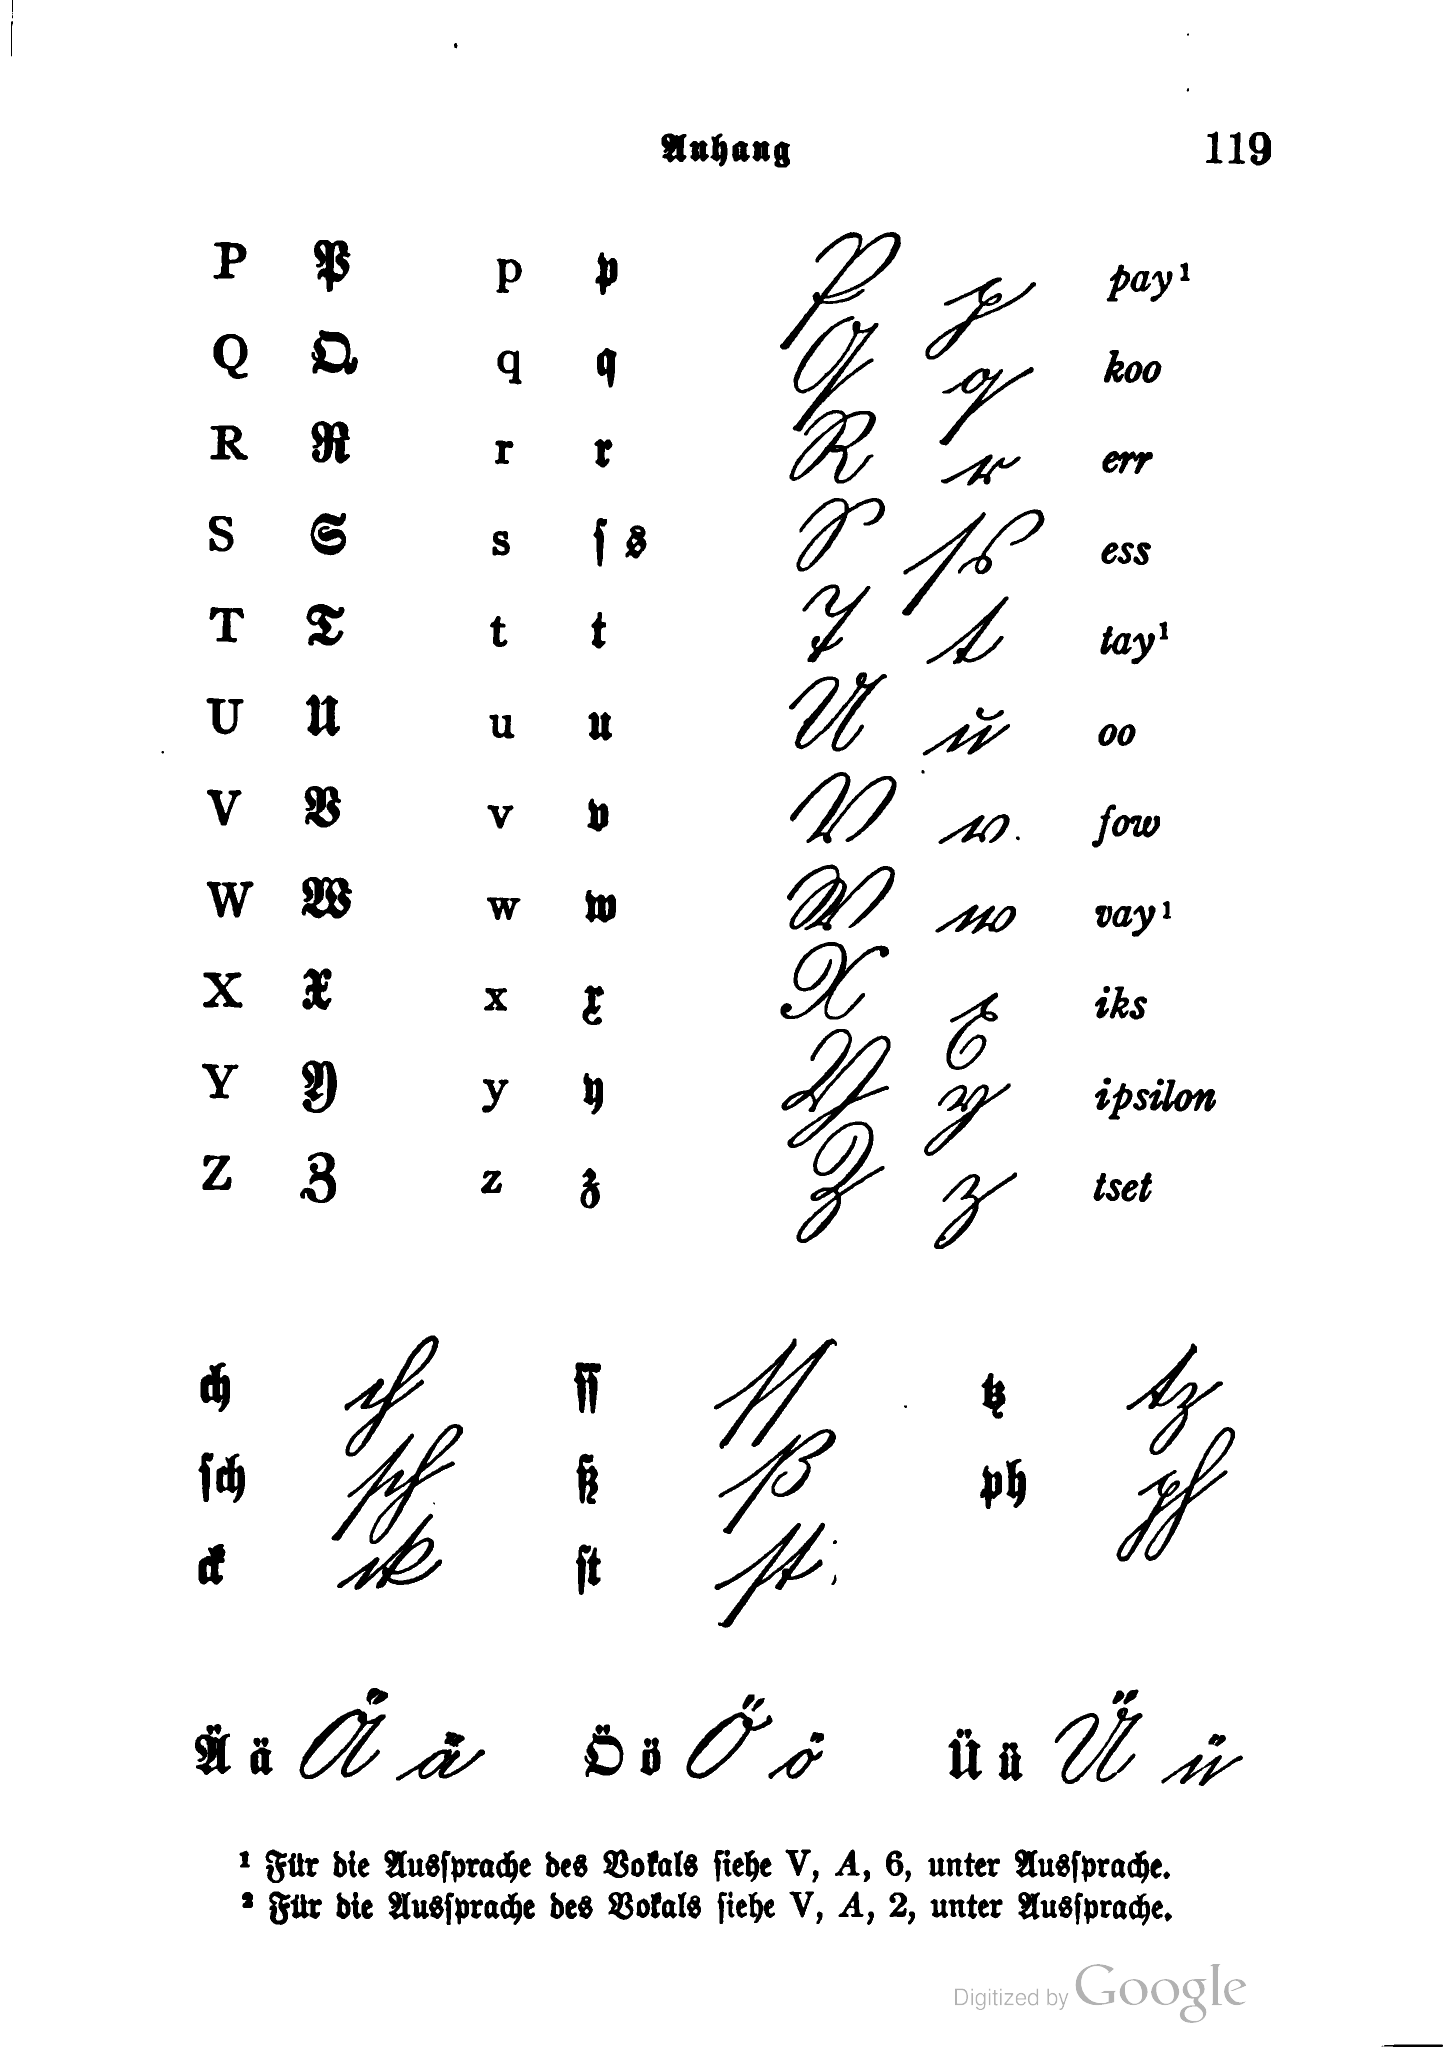 Anhang 119
P P p p P p pay¹
Q Q q q Q q koo
R R r r R r err
S S s ſ s S ſ s ess
T T t t T t tay¹
U U u u U u oo
V V v v V v fow
W W w w W w vay¹
X X x x X x iks
Y Y y y Y y ipsilon
Z Z z z Z z tset
ch ch ſſ ſſ tz tz
ſch ſch ß ß ph ph
ck ck ſt ſt
Ä ä Ä ä Ö ö Ö ö Ü ü Ü ü
¹ Für die Ausſprache des Vokals ſiehe V, A, 6, unter Ausſprache.
² Für die Ausſprache des Vokals ſiehe V, A, 2, unter Ausſprache.
Digitized by Google